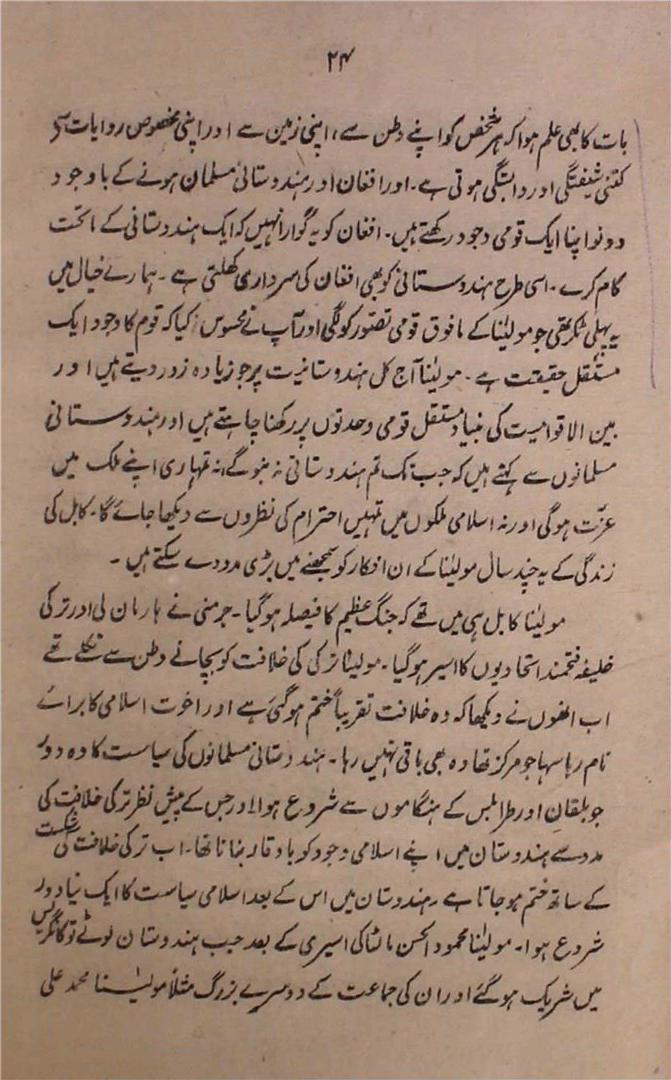 ۲۴
بات کا بھی علم ہوا کہ ہر شخص کو اپنے وطن سے، اپنی زمین سے اور اپنی مخصوص روایات سے
کتنی شیفتگی اور وابستگی ہوتی ہے۔ اور افغان اور ہندوستانی مسلمان ہونے کے باوجود
دونو اپنا ایک قومی وجود رکھتے ہیں۔ افغان کو یہ گوارا نہیں کہ ایک ہندوستانی کے ماتحت
کام کرے۔ اسی طرح ہندوستانی کو بھی افغان کی سرداری کھلتی ہے۔ ہمارے خیال میں
یہ پہلی ٹکر تھی جو مولینٰا کے مافوق قومی تصوّر کو لگی اور آپ نے محسوس کیا کہ قوم کا وجود ایک
مستقل حقیقت ہے۔ مولینٰا آج کل ہندوستانیت پر جو زیادہ زور دیتے ہیں اور
بین الاقوامیت کی بنیاد مستقل قومی وحدتوں پر رکھنا چاہتے ہیں اور ہندوستانی
مسلمانوں سے کہتے ہیں کہ جب تک تم ہندوستانی نہ بنو گے نہ تمہاری اپنے ملک میں
عزّت ہوگی اور نہ اسلامی ملکوں میں تمہیں احترام کی نظروں سے دیکھا جائے گا۔ کابل کی
زندگی کے یہ چند سال مولینٰا کے ان افکار کو سمجھنے میں بڑی مدد دے سکتے ہیں۔
مولینٰا کابل ہی میں تھے کہ جنگ عظیم کا فیصلہ ہو گیا۔ جرمنی نے ہار مان لی اور ترکی
خلیفہ فتحمند اتحادیوں کا اسیر ہو گیا۔ مولینٰا ترکی کی خلافت کو بچانے وطن سے نکلے تھے
اب انھوں نے دیکھا کہ وہ خلافت تقریباً ختم ہو گئی ہے اور اخوت اسلامی کا برائے
نام رہا سہا جو مرکز تھا وہ بھی باقی نہیں رہا۔ ہندوستانی مسلمانوں کی سیاست کا وہ دور
جو بلقان اور طرابلس کے ہنگاموں سے شروع ہوا اور جس کے پیش نظر ترکی خلافت کی
مدد سے ہندوستان میں اپنے اسلامی وجود کو باوقار بنانا تھا۔ اب ترکی خلافت کی شکست
کے ساتھ ختم ہو جاتا ہے ہندوستان میں اس کے بعد اسلامی سیاست کا ایک نیا دور
شروع ہوا۔ مولینٰا محمود الحسن مالٹا کی اسیری کے بعد جب ہندوستان لوٹے تو کانگریس
میں شریک ہو گئے اور ان کی جماعت کے دوسرے بزرگ مثلاً مولینٰا محمد علی